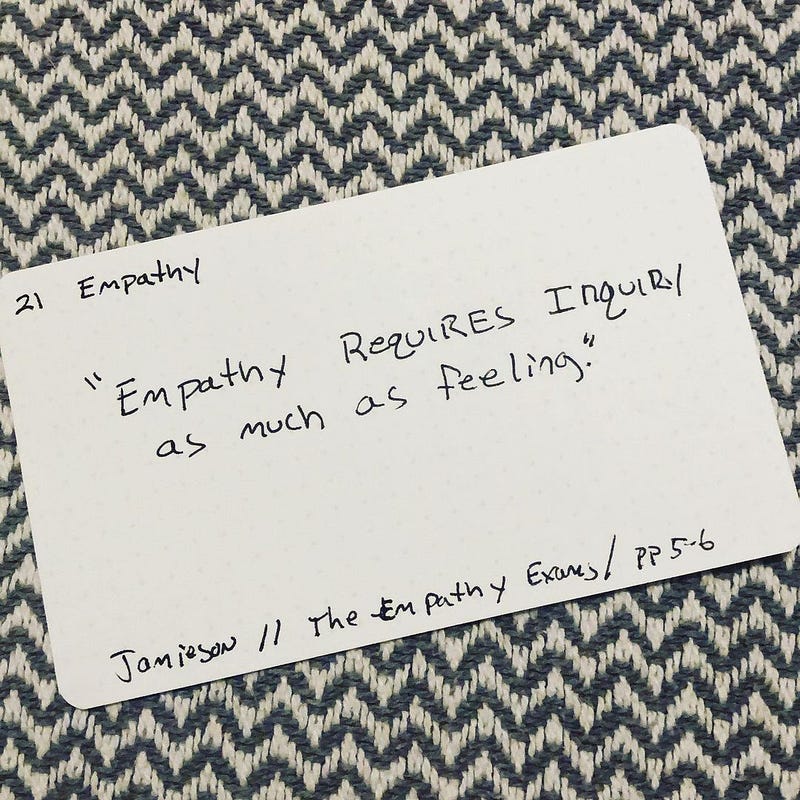 21 Empathy
"Empathy Requires Inquiry
as much as feeling."
Jamieson // The Empathy Exams / pp 5-6